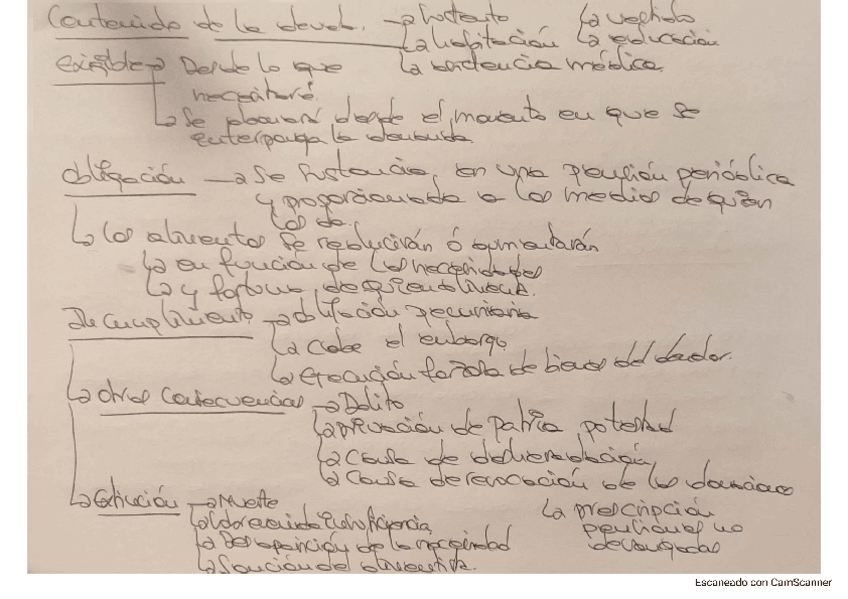 Contenido de la deuda. → Sustento ↳ vestido
↳ habitación ↳ educación
exigible → Desde lo que ↳ asistencia médica
necesitare
↳ Se abonará desde el momento en que se
interponga la demanda
obligación → Se sustancia en una pensión periódica
y proporcionada a los medios de quien
los da.
↳ los alimentos se reducirán ó aumentarán
↳ en función de las necesidades
↳ y fortuna de quien
Incumplimiento → obligación pecuniaria
↳ Cabe el embargo
↳ ejecución forzosa de bienes del deudor.
↳ otras Consecuencias → Delito
↳ privación de patria potestad
↳ Causa de desheredación
↳ Causa de revocación de las donaciones
↳ Extinción → Muerte ↳ prescripción
↳ pensiones no
↳ Desaparición de la necesidad devengadas
↳ del alimentista.
Escaneado con CamScanner